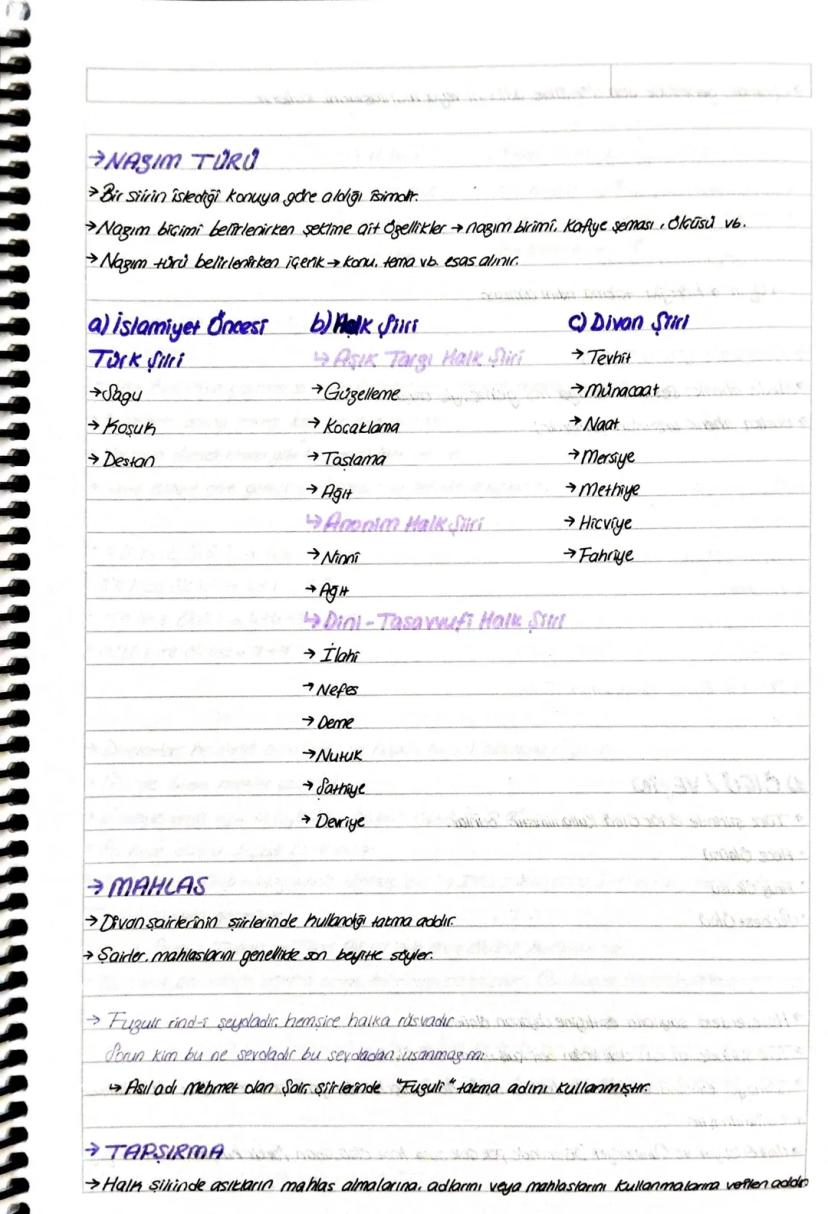 →NAZIM TÜRÜ
→Bir şiirin işlediği konuya göre aldığı isimdir.
→Nazım biçimi belirlenirken şekline ait özellikler → nazım birimi, kafiye şeması, ölçüsü vb.
→Nazım türü belirlenirken içerik → konu, tema vb. esas alınır.
a) İslamiyet Öncesi
Türk Şiiri
→Sagu
→Koşuk
→Destan
b) Halk Şiiri
↳Aşık Tarzı Halk Şiiri
→Güzelleme
→Koçaklama
→Taşlama
→Ağıt
↳Anonim Halk Şiiri
→Ninni
→Ağıt
↳Dini-Tasavvufi Halk Şiiri
→İlahi
→Nefes
→Deme
→Nutuk
→Şathiye
→Devriye
c) Divan Şiiri
→Tevhit
→Münacaat
→Naat
→Mersiye
→Methiye
→Hicviye
→Fahriye
→MAHLAS
→Divan şairlerinin şiirlerinde kullandığı takma addır.
→Şairler, mahlaslarını genellikle son beyitte söyler.
→Fuzuli rind-i şeydadır hemşire halka rüsvadır
Sorun kim bu ne sevdadır bu sevdadan usanmaz mı
↳Asıl adı Mehmet olan Şair, şiirlerinde "Fuzuli" takma adını kullanmıştır.
→TAPŞIRMA
→Halk şiirinde aşıkların mahlas almalarına, adlarını veya mahlaslarını kullanmalarına verilen addır